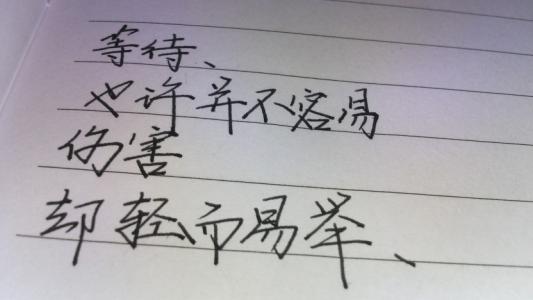 等待、
也许并不容易
伤害
却轻而易举、